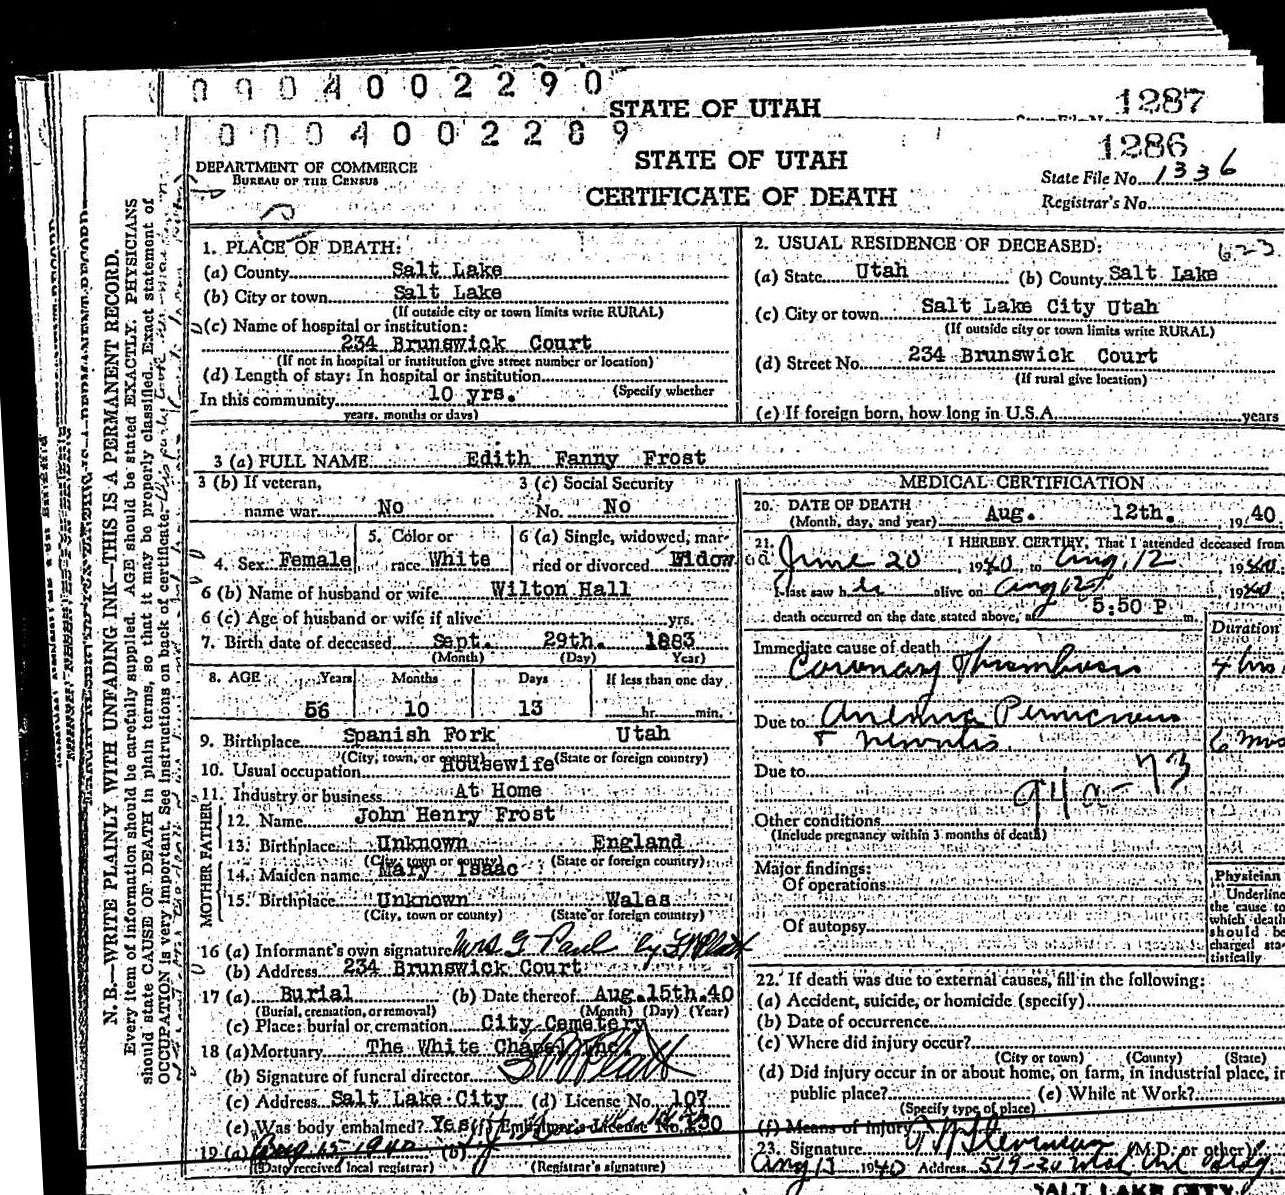 0004002290
STATE OF UTAH
1287
0004002289
1286
DEPARTMENT OF COMMERCE
BUREAU OF THE CENSUS
STATE OF UTAH
CERTIFICATE OF DEATH
State File No. 1336
Registrar's No.
N. B.—WRITE PLAINLY WITH UNFADING INK—THIS IS A PERMANENT RECORD.
Every item of information should be carefully supplied. AGE should be stated EXACTLY. PHYSICIANS
should state CAUSE OF DEATH in plain terms, so that it may be properly classified. Exact statement of
OCCUPATION is very important. See instructions on back of certificate.
1. PLACE OF DEATH:
(a) County Salt Lake
(b) City or town Salt Lake
(If outside city or town limits write RURAL)
(c) Name of hospital or institution:
234 Brunswick Court
(If not in hospital or institution give street number or location)
(d) Length of stay: In hospital or institution
(Specify whether
In this community 10 yrs.
years, months or days)
2. USUAL RESIDENCE OF DECEASED: 623
(a) State Utah (b) County Salt Lake
(c) City or town Salt Lake City Utah
(If outside city or town limits write RURAL)
(d) Street No. 234 Brunswick Court
(If rural give location)
(e) If foreign born, how long in U.S.A. years
3 (a) FULL NAME Edith Fanny Frost
3 (b) If veteran, name war No
3 (c) Social Security No. No
4. Sex Female
5. Color or race White
6 (a) Single, widowed, married or divorced Widow
6 (b) Name of husband or wife Wilton Hall
6 (c) Age of husband or wife if alive yrs.
7. Birth date of deceased Sept. 29th. 1883
(Month) (Day) Year)
8. AGE Years Months Days If less than one day
56 10 13 hr. min.
9. Birthplace Spanish Fork Utah
(City, town, or county) (State or foreign country)
10. Usual occupation Housewife
11. Industry or business At Home
FATHER
12. Name John Henry Frost
13. Birthplace Unknown England
(City, town or county) (State or foreign country)
MOTHER
14. Maiden name Mary Isaac
15. Birthplace Unknown Wales
(City, town or county) (State or foreign country)
16 (a) Informant's own signature Mrs G Paul by
(b) Address 234 Brunswick Court
17 (a) Burial (b) Date thereof Aug.15th.40
(Burial, cremation, or removal) (Month) (Day) (Year)
(c) Place: burial or cremation City Cemetery
18 (a) Mortuary The White Chapel Inc.
(b) Signature of funeral director
(c) Address Salt Lake City (d) License No. 107
(e) Was body embalmed? Yes (f) Embalmer's License No. 130
19 (a) Aug 15 1940 (b)
(Date received local registrar) (Registrar's signature)
MEDICAL CERTIFICATION
20. DATE OF DEATH
(Month, day, and year) Aug. 12th. , 1940.
21. I HEREBY CERTIFY, That I attended deceased from
June 20, 1940 to Aug. 12, 1940
I last saw h alive on Aug 12 1940
death occurred on the date stated above, at 5:50 P m.
Duration
Immediate cause of death
Coronary Thrombosis 4 hrs.
Due to Anemia Pernicious
+ Neuritis 6 mos
Due to
94a-73
Other conditions
(Include pregnancy within 3 months of death)
Major findings:
Of operations
Of autopsy
Physician
Underline
the cause to
which death
should be
charged sta-
tistically
22. If death was due to external causes, fill in the following:
(a) Accident, suicide, or homicide (specify)
(b) Date of occurrence
(c) Where did injury occur?
(City or town) (County) (State)
(d) Did injury occur in or about home, on farm, in industrial place, in
public place? (e) While at Work?
(Specify type of place)
(f) Means of Injury
23. Signature (M.D. or other)
Aug 13 1940 Address 519-20 Utah Bldg.
SALT LAKE CITY